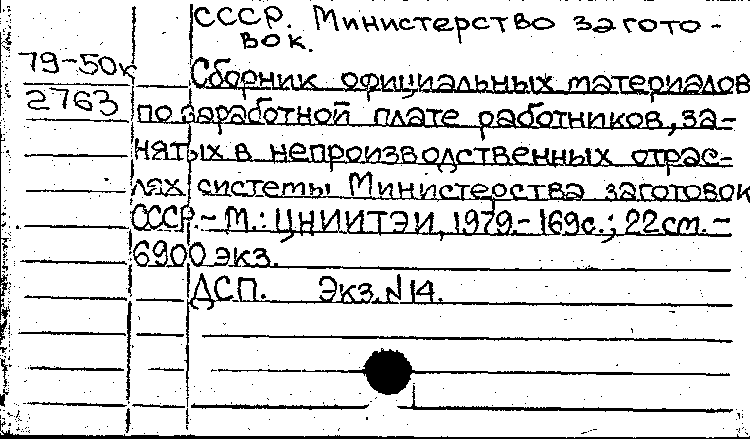 СССР. Министерство загото-
вок.
79-50к
2763
Сборник официальных материалов
по заработной плате работников, за-
нятых в непроизводственных отрас-
лях системы Министерства заготовок
СССР. - М.: ЦНИИТЭИ, 1979. - 169с.; 22см. -
6900 экз.
ДСП. Экз. N 14.